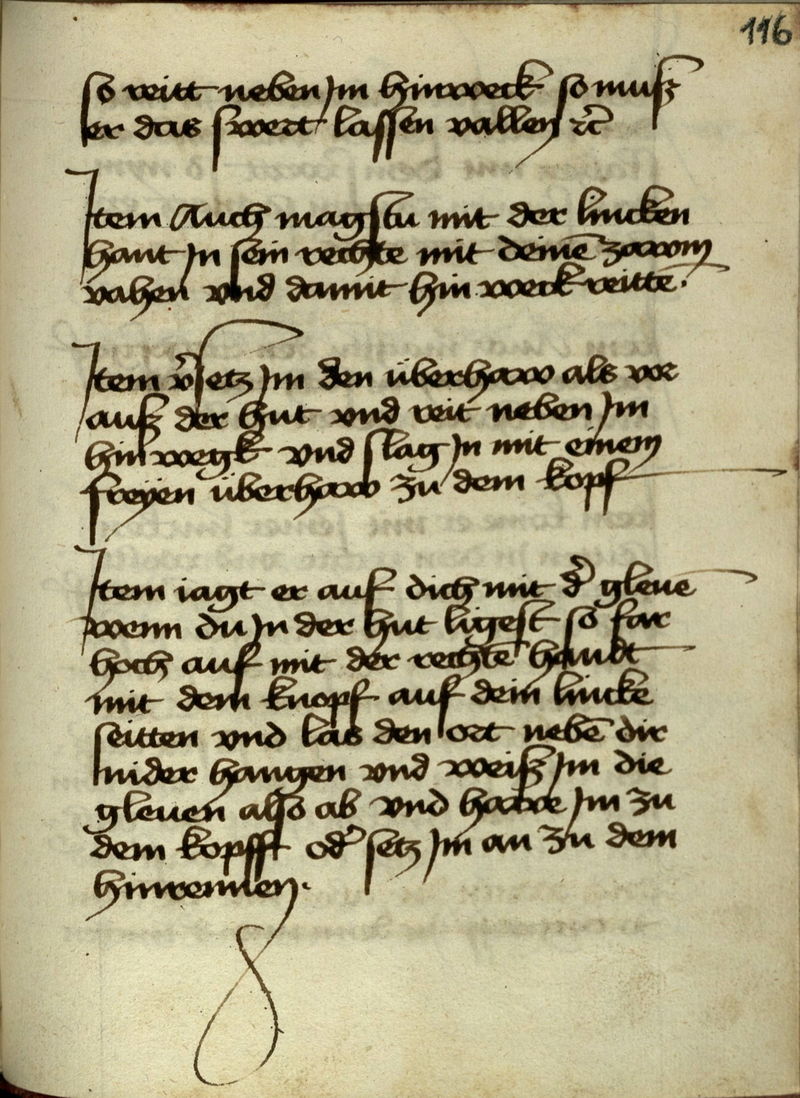 116
so reitt neben Jm hinweck so muß
er das swert lassen vallen ꝛc̄
Jtem Auch magstu mit der lincken
hant Jn sein rechte mit deinē zawm
vahen vnd damit hin weck reittē.
Jtem v̄setz Jm den überhaw als vor
auß der hut vnd reit neben Jm
hin wegk vnd slag Jn mit einem
freyen überhaw zu dem kopf
Jtem iagt er auf dich mit d̄ gleuē
wenn du Jn der hut ligest so far
hoch auf mit der rechtē handt
mit dem knopf auf dein lincke
seitten vnd las den ort nebē dir
nider hangen vnd weiß Jm die
gleuen also ab vnd hawe Jm zu
dem kopfft od̄ setz Jm an zu dem
hinrennen.